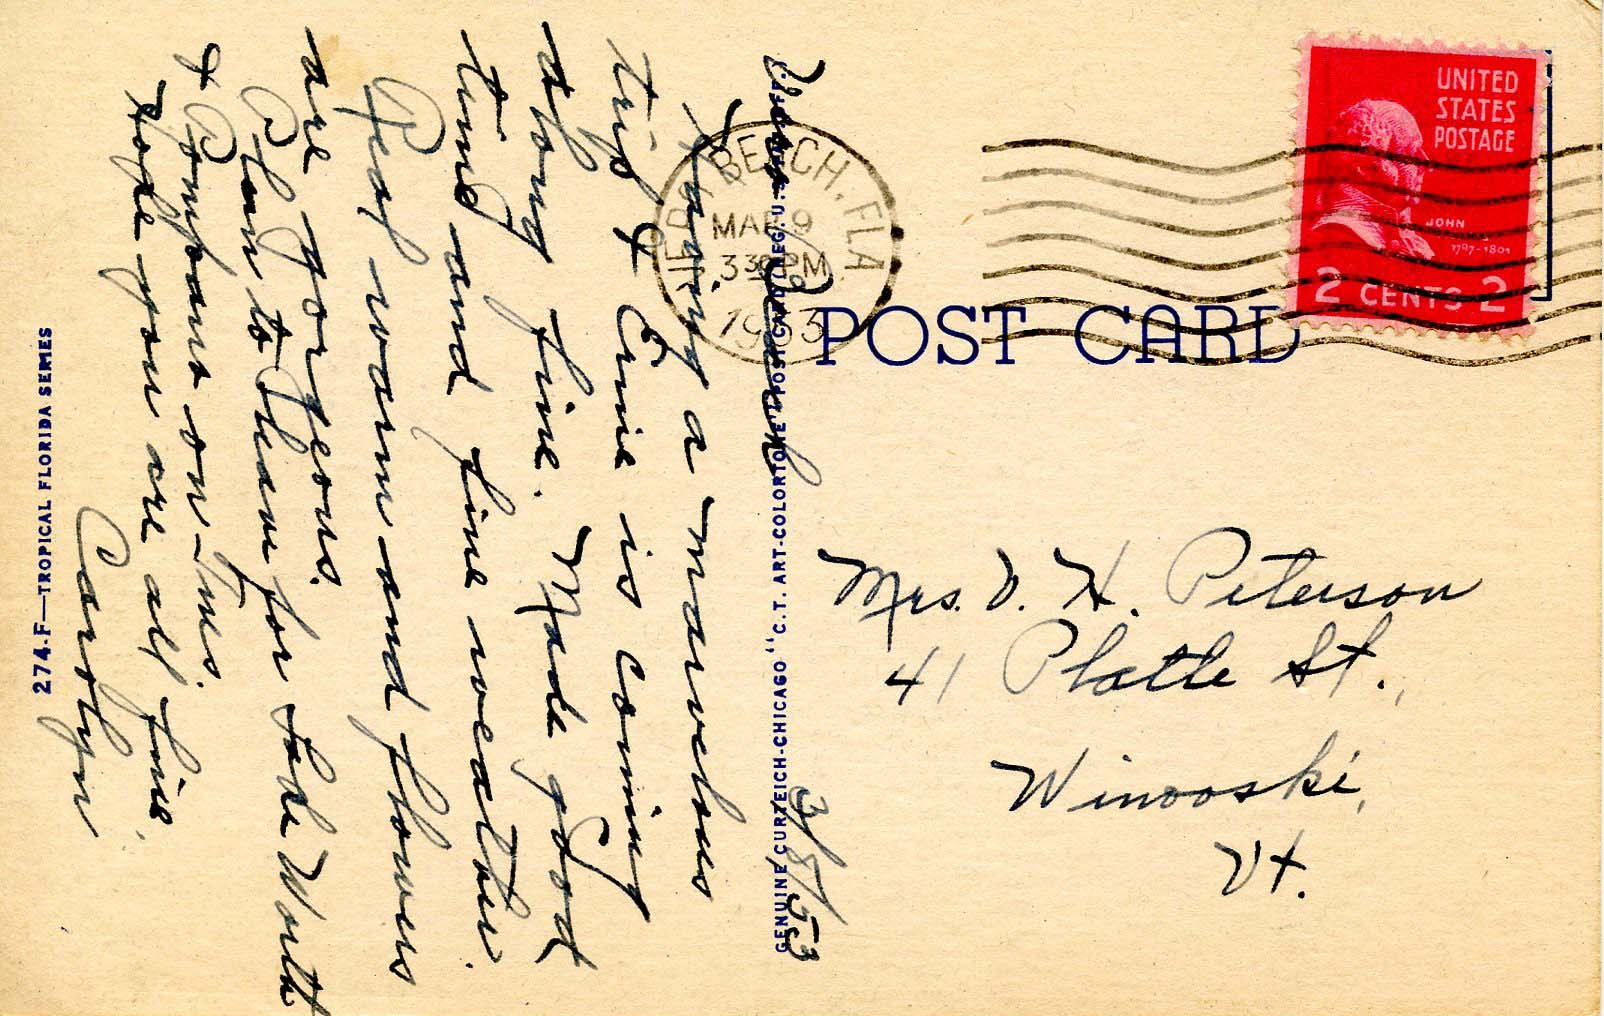 Vero Beach
3/8/53
Having a marvelous
trip & Ernie is coming
along fine. Made good
time and fine weather.
Real warm and flowers
are gorgeous.
Plan to leave for Lake Worth
& Pompano on Tues.
Hope you are all fine.
Carolyn
274-F—TROPICAL FLORIDA SERIES
GENUINE CURTEICH-CHICAGO "C.T. ART-COLORTONE" POST CARD (REG. U.S. PAT. OFF.)
POST CARD
BEACH, FLA
MAR 9
3 30 PM
1953
UNITED
STATES
POSTAGE
JOHN
1797-1801
2 CENTS 2
Mrs. D. H. Peterson
41 Platte St.,
Winooski,
Vt.